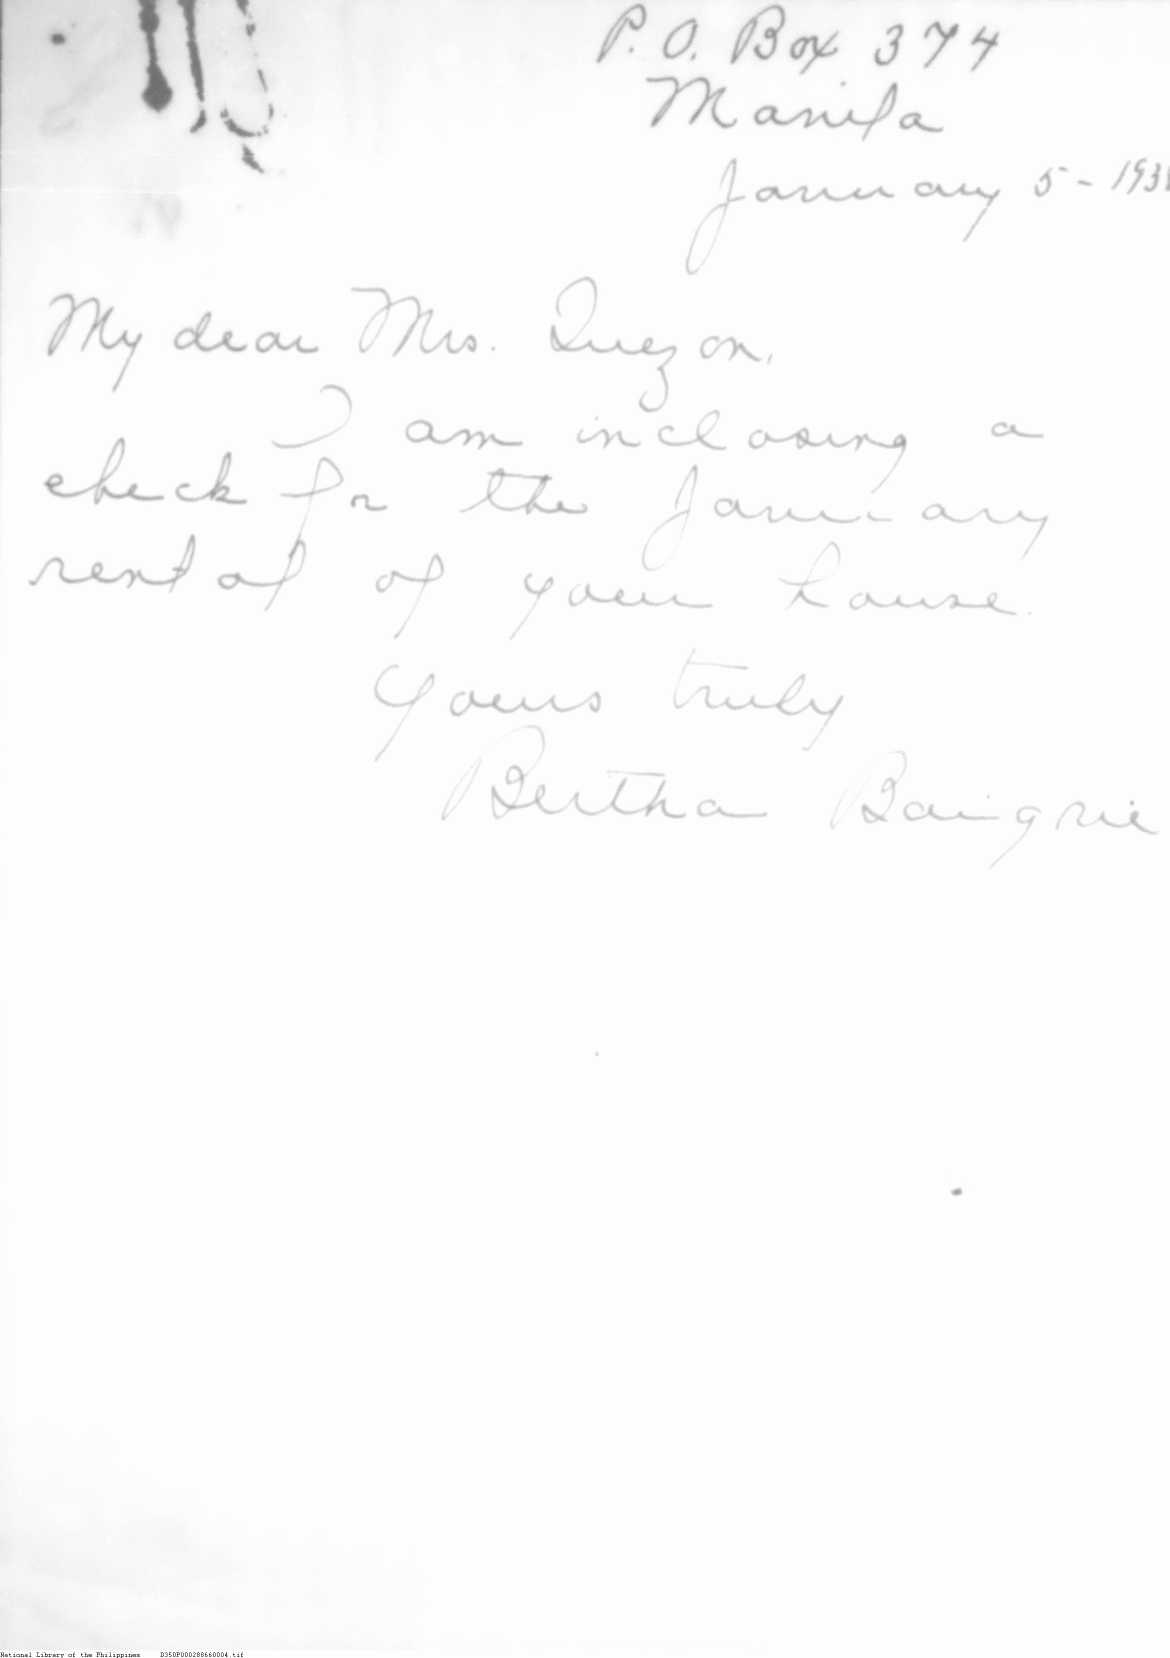 P. O. Box 374
Manila
January 5 - 193
My dear Mrs. Quezon,
I am inclosing a
check for the January
rental of your house.
Yours truly
Bertha Baingrie
National Library of the Philippines D350P000288660004.tif